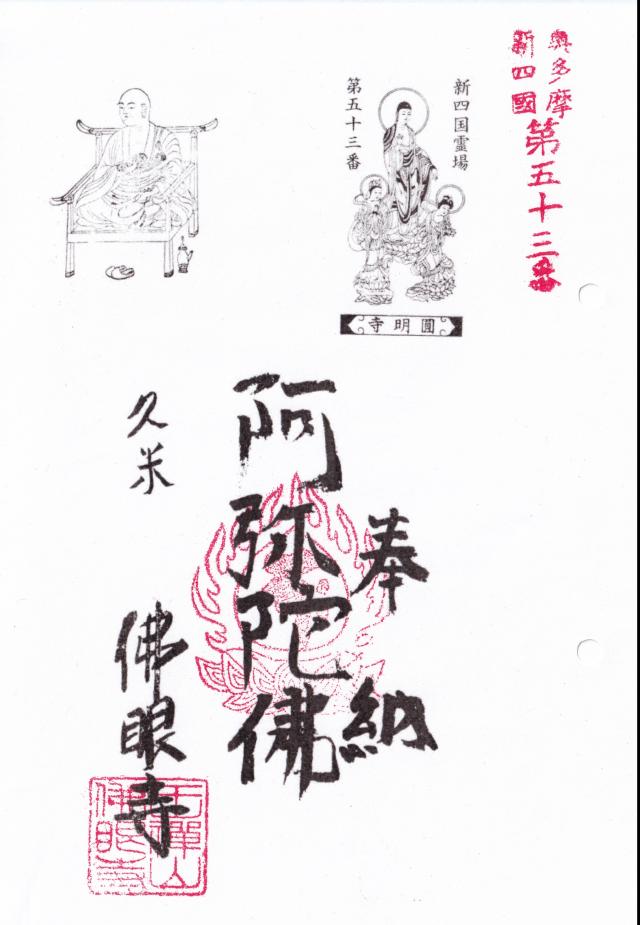 奥多摩
新四國
第五十三番
新四国霊場
第五十三番
圓明寺
奉納
阿弥陀佛
久米
佛眼寺
禪山
佛眼寺